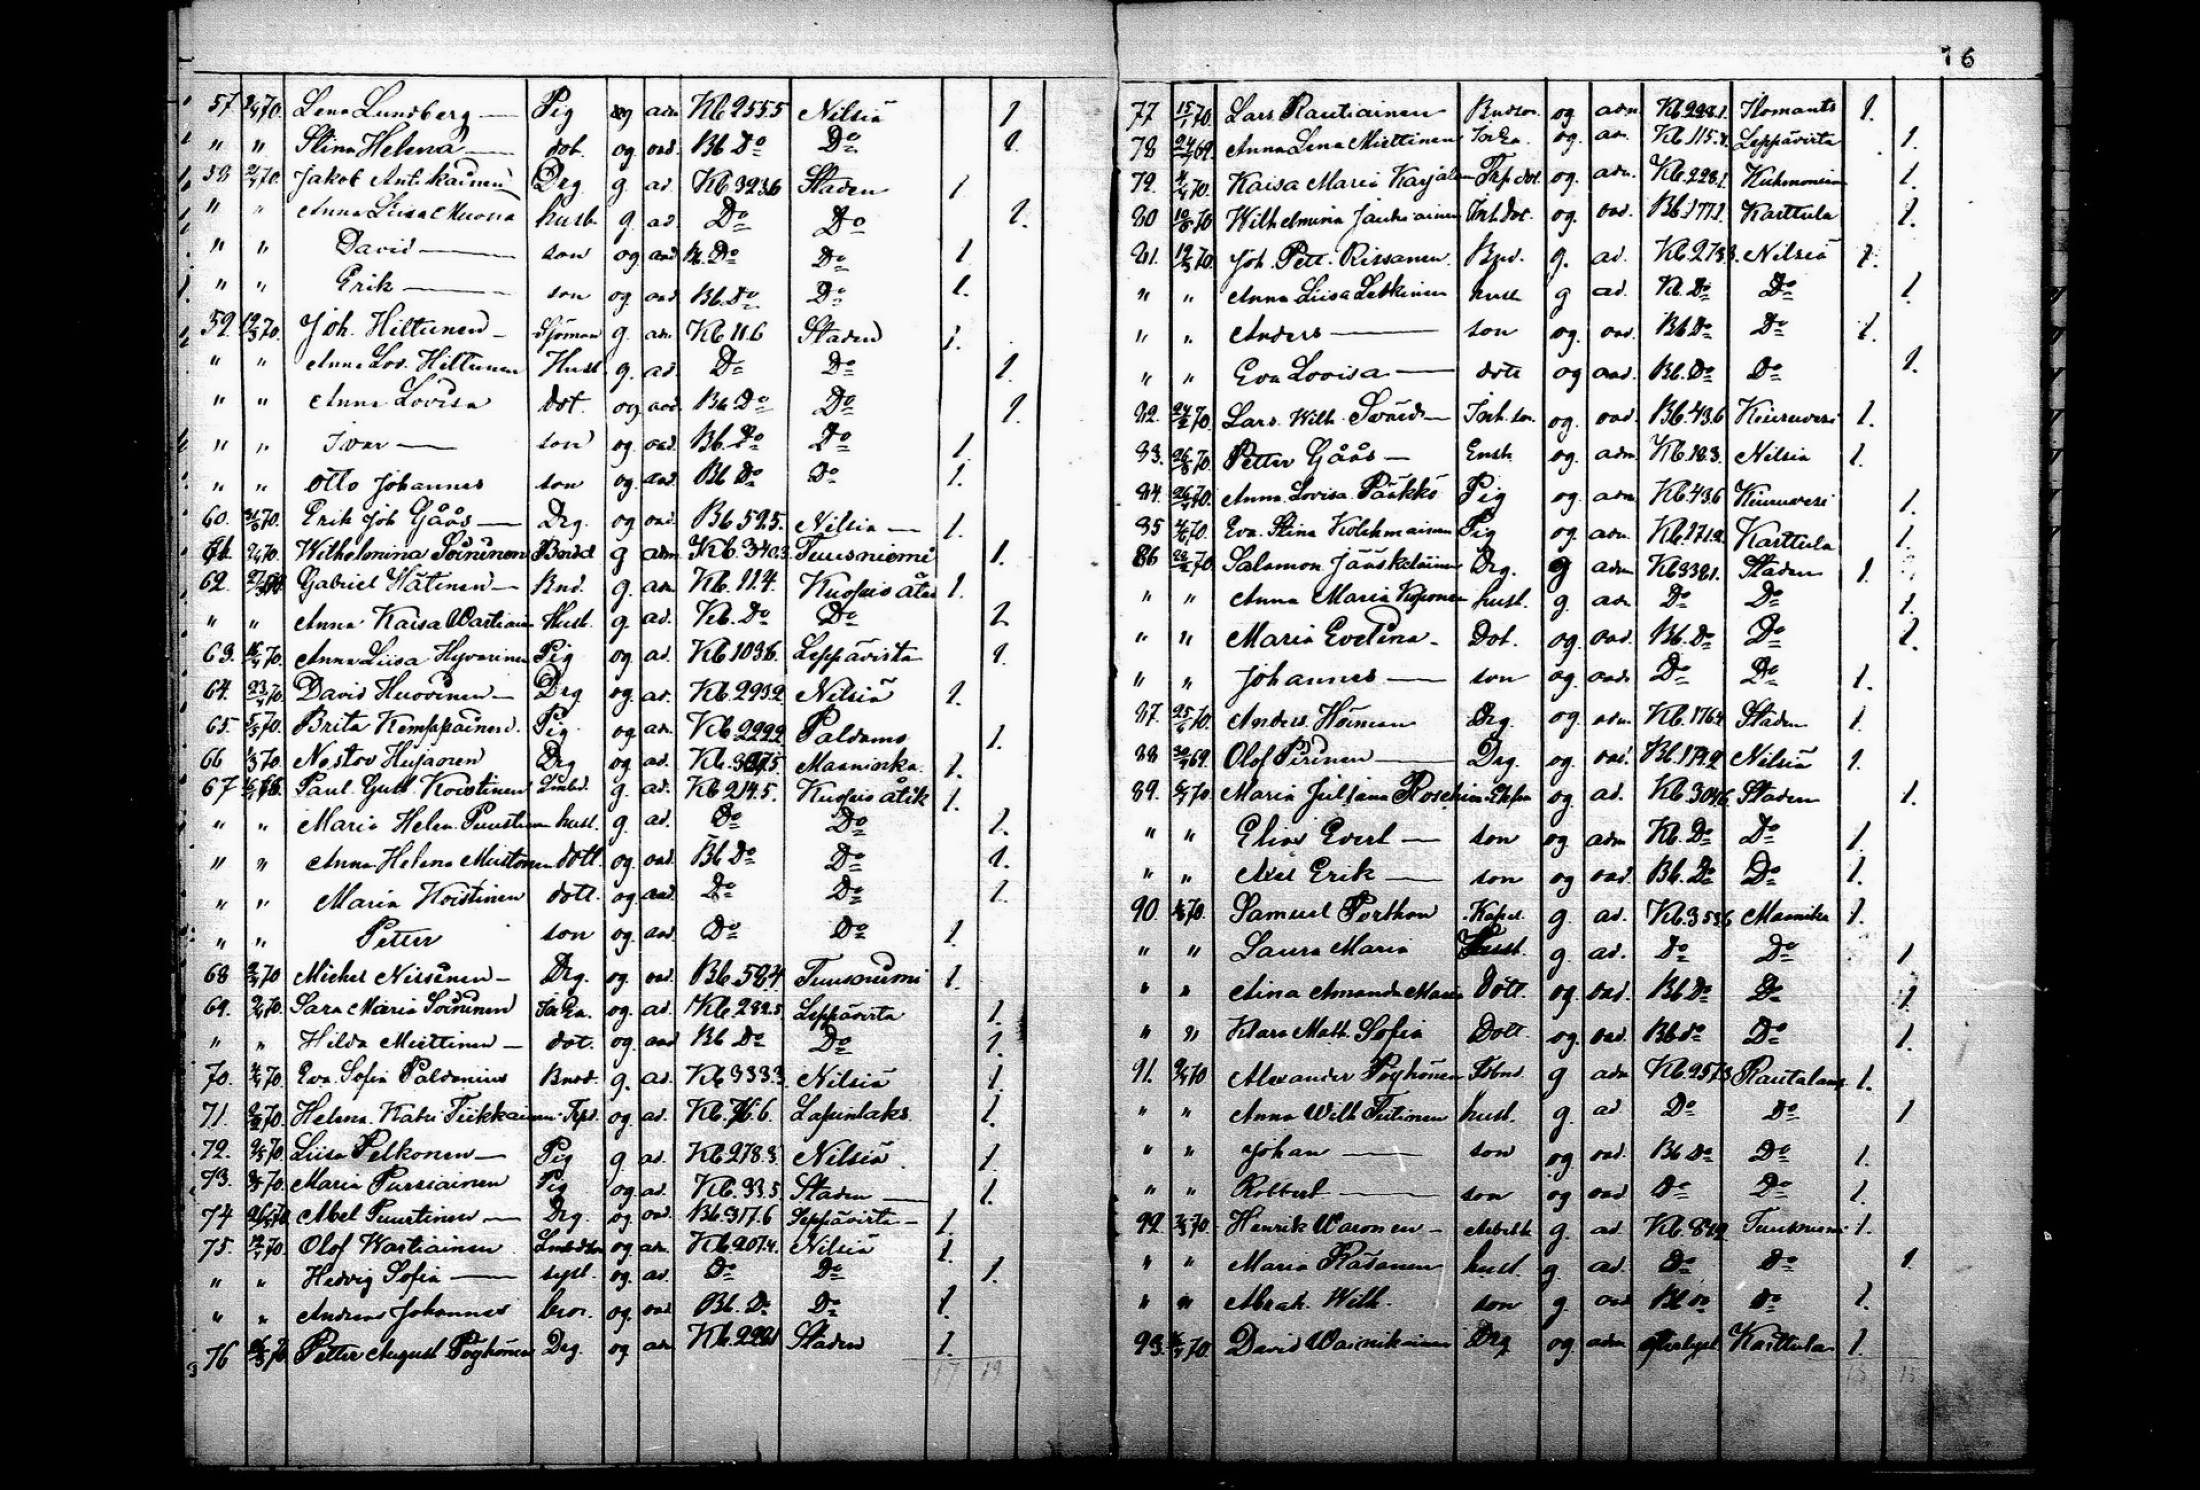 16
57 70. Lena Lundberg — Pig og adm Kb 255.5 Nilsiä 1
" " Stina Helena — dot. og. oad. Bb Do Do 1.
58 70. Jakob Antikainen Drg g. ad. Kb 323.6 Staden 1
" " Anna Liisa Muona hust. g. ad. Do Do 1.
" " David — son og oad Bb. Do Do 1.
" " Erik — son og oad. Bb. Do Do 1.
59. 70. Joh. Hiltunen — Sjöman g. adm. Kb 11.6 Staden 1.
" " Anna Lov. Hiltunen Hust. g. ad. Do Do 1.
" " Anna Lovisa dot. og oad. Bb Do Do 1.
" " Ivar — son og oad. Bb. Do Do 1.
" " Otto Johannes son og. oad. Bb Do Do 1.
60. 70. Erik Joh Gåås — Drg. og oad. Bb 52.5. Nilsiä — 1.
61. 70. Wilhelmina Soininen g adm. Kb. 340.3 Tuusniemi 1.
62. Gabriel Wätinen — Bnd. g. adm Kb. 11.4. Kuopio 1.
" " Anna Kaisa Wartiain Hust. g. ad. Kb. Do Do
63. 70. Anna Liisa Hyvärinen Pig og. ad. Kb 103.6. Leppävirta 1.
64. 23 70. David Huovinen — Drg og. ad. Kb. 293.2 Nilsiä 1.
65. 70. Brita Kemppainen. Pig og adm. Kb 222.2 Paldamo 1.
66 70. Nestor Hujanen Drg og ad. Kb. Maaninka. 1.
67 Paul Gust. Koistinen g. ad. Kb 214.5. Kuopio 1.
" " Maria Helen. Puustinen hust. g. ad. Do Do 1.
" " Anna Helena Mustonen dott. og. oad. Bb Do Do 1.
" " Maria Koistinen dott. og. oad. Do Do 1.
" " Petter son og. oad. Do Do 1.
68 70 Michel Nissinen — Drg. og. oad. Bb. 52.4 Tuusniemi 1.
69. 70. Sara Maria Soininen og. ad. Kb. 282.5 Leppävirta 1.
" " Hilda Miettinen — dot. og. oad Bb Do Do 1.
70. 70. Eva Sofia Paldanius g. ad. Kb 333.3. Nilsiä 1
71. 70. Helena Katri Tiikkainen og. ad. Kb. 76.6. Lapinlaks 1.
72. 70. Liisa Pelkonen — Pig g ad. Kb 278.3 Nilsiä 1.
73. 70. Maria Pursiainen Pig og ad. Kb. 33.5 Staden — 1.
74 Abel Puustinen — Drg. og oad. Bb. 317.6 Leppävirta — 1.
75. 70. Olof Wartiainen og adm. Kb. 207.4. Nilsiä 1.
" " Hedvig Sofia — syst. og. ad. Do Do 1.
" " Andreas Johannes bror. og. oad Bb. Do Do 1.
76 Petter August Pöyhönen Drg. og adm Staden 1.
17 19
77 15/1 70. Lars Rautiainen og adm Kb. 228.1. Ilomants 1.
78 69. Anna Lena Miettinen og. ad. Kb 115. Leppävirta 1.
79. 70. Kaisa Maria Karjalainen og. adm. Kb. 228.1. Kuhmoniemi 1.
80 70 Wilhelmina Jauhiainen Inh. dot. og. oad. Bb. 177.1. Karttula 1.
81. 70. Joh. Pett. Rissanen. Bnd. g. ad. Kb. 273.3. Nilsiä 1.
" " Anna Liisa Leskinen hust. g ad. Kb. Do Do 1.
" " Anders — son og. oad. Bb Do Do 1.
" " Eva Lovisa — dott og oad. Bb. Do Do 1.
82. 70. Lars Wilh. Svärd — Inh. son. og. oad. Bb. 43.6 Kiuruvesi 1.
83. 70. Petter Gåås — Enk. og. adm. Kb. 18.3. Nilsiä 1.
84. 70. Anna Lovisa Pääkkö Pig og. adm Kb. 43.6 Kiuruvesi 1.
85 70. Eva Stina Kolehmainen Pig og. adm. Kb. 171.2. Karttula 1.
86 70 Salomon Jääskeläinen Drg. g adm Kb 338.1. Staden 1.
" " Anna Maria Koponen hust. g. adm Do Do 1.
" " Maria Evelina — Dot. og. oad. Bb. Do Do 1.
" " Johannes — son og. oad. Do Do 1.
87. 25 70. Anders Höiman Drg. og. adm. Kb. 176.4 Staden 1.
88 69. Olof Pirinen — Drg. og. oad. Bb. 179.2 Nilsiä 1.
89. 70 Maria Juliana Roschier og. ad. Kb. 304.6 Staden 1.
" " Elias Evert — son og. adm Kb. Do Do 1.
" " Axel Erik — son og oad. Bb. Do Do 1.
90 70. Samuel Porthan Kapel. g. ad. Kb. 353.6 Maaninka 1.
" " Laura Maria Hust. g. ad. Do Do 1
" " Aina Amanda Maria Dott. og. oad. Bb Do Do 1
" " Klara Math. Sofia Dott. og. oad. Bb do Do 1.
91. 70 Alexander Pöyhönen g adm Kb. 257.3 Rautalamp 1.
" " Anna Wilh. Tiitinen hust. g. ad Do Do 1
" " Johan — son og. oad. Bb Do Do 1.
" " Robbert — son og oad Do Do 1.
92. 70. Henrik Waronen — g. ad. Kb. Tuusniemi 1.
" " Maria Räsänen hust. g. ad. Do Do 1.
" " Abrah. Wilh. son g. oad Bb do do 1.
93. 70. David Wainikainen Drg og. adm efterlyst Karttula 1.
15